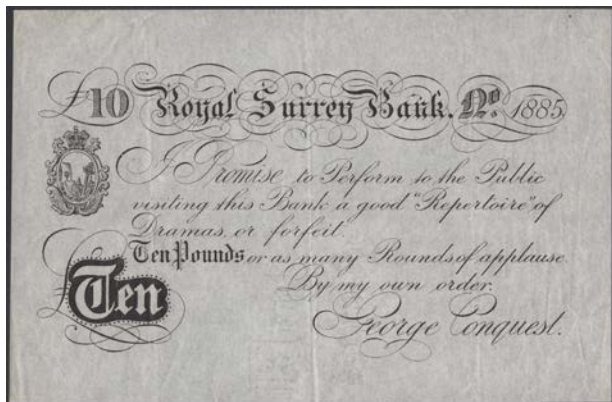 £10 Royal Surrey Bank. No. 1885
I Promise to Perform to the Public
visiting this Bank a good "Repertoire" of
Dramas, or forfeit.
Ten Pounds or as many Rounds of applause
By my own order.
£Ten
George Conquest.